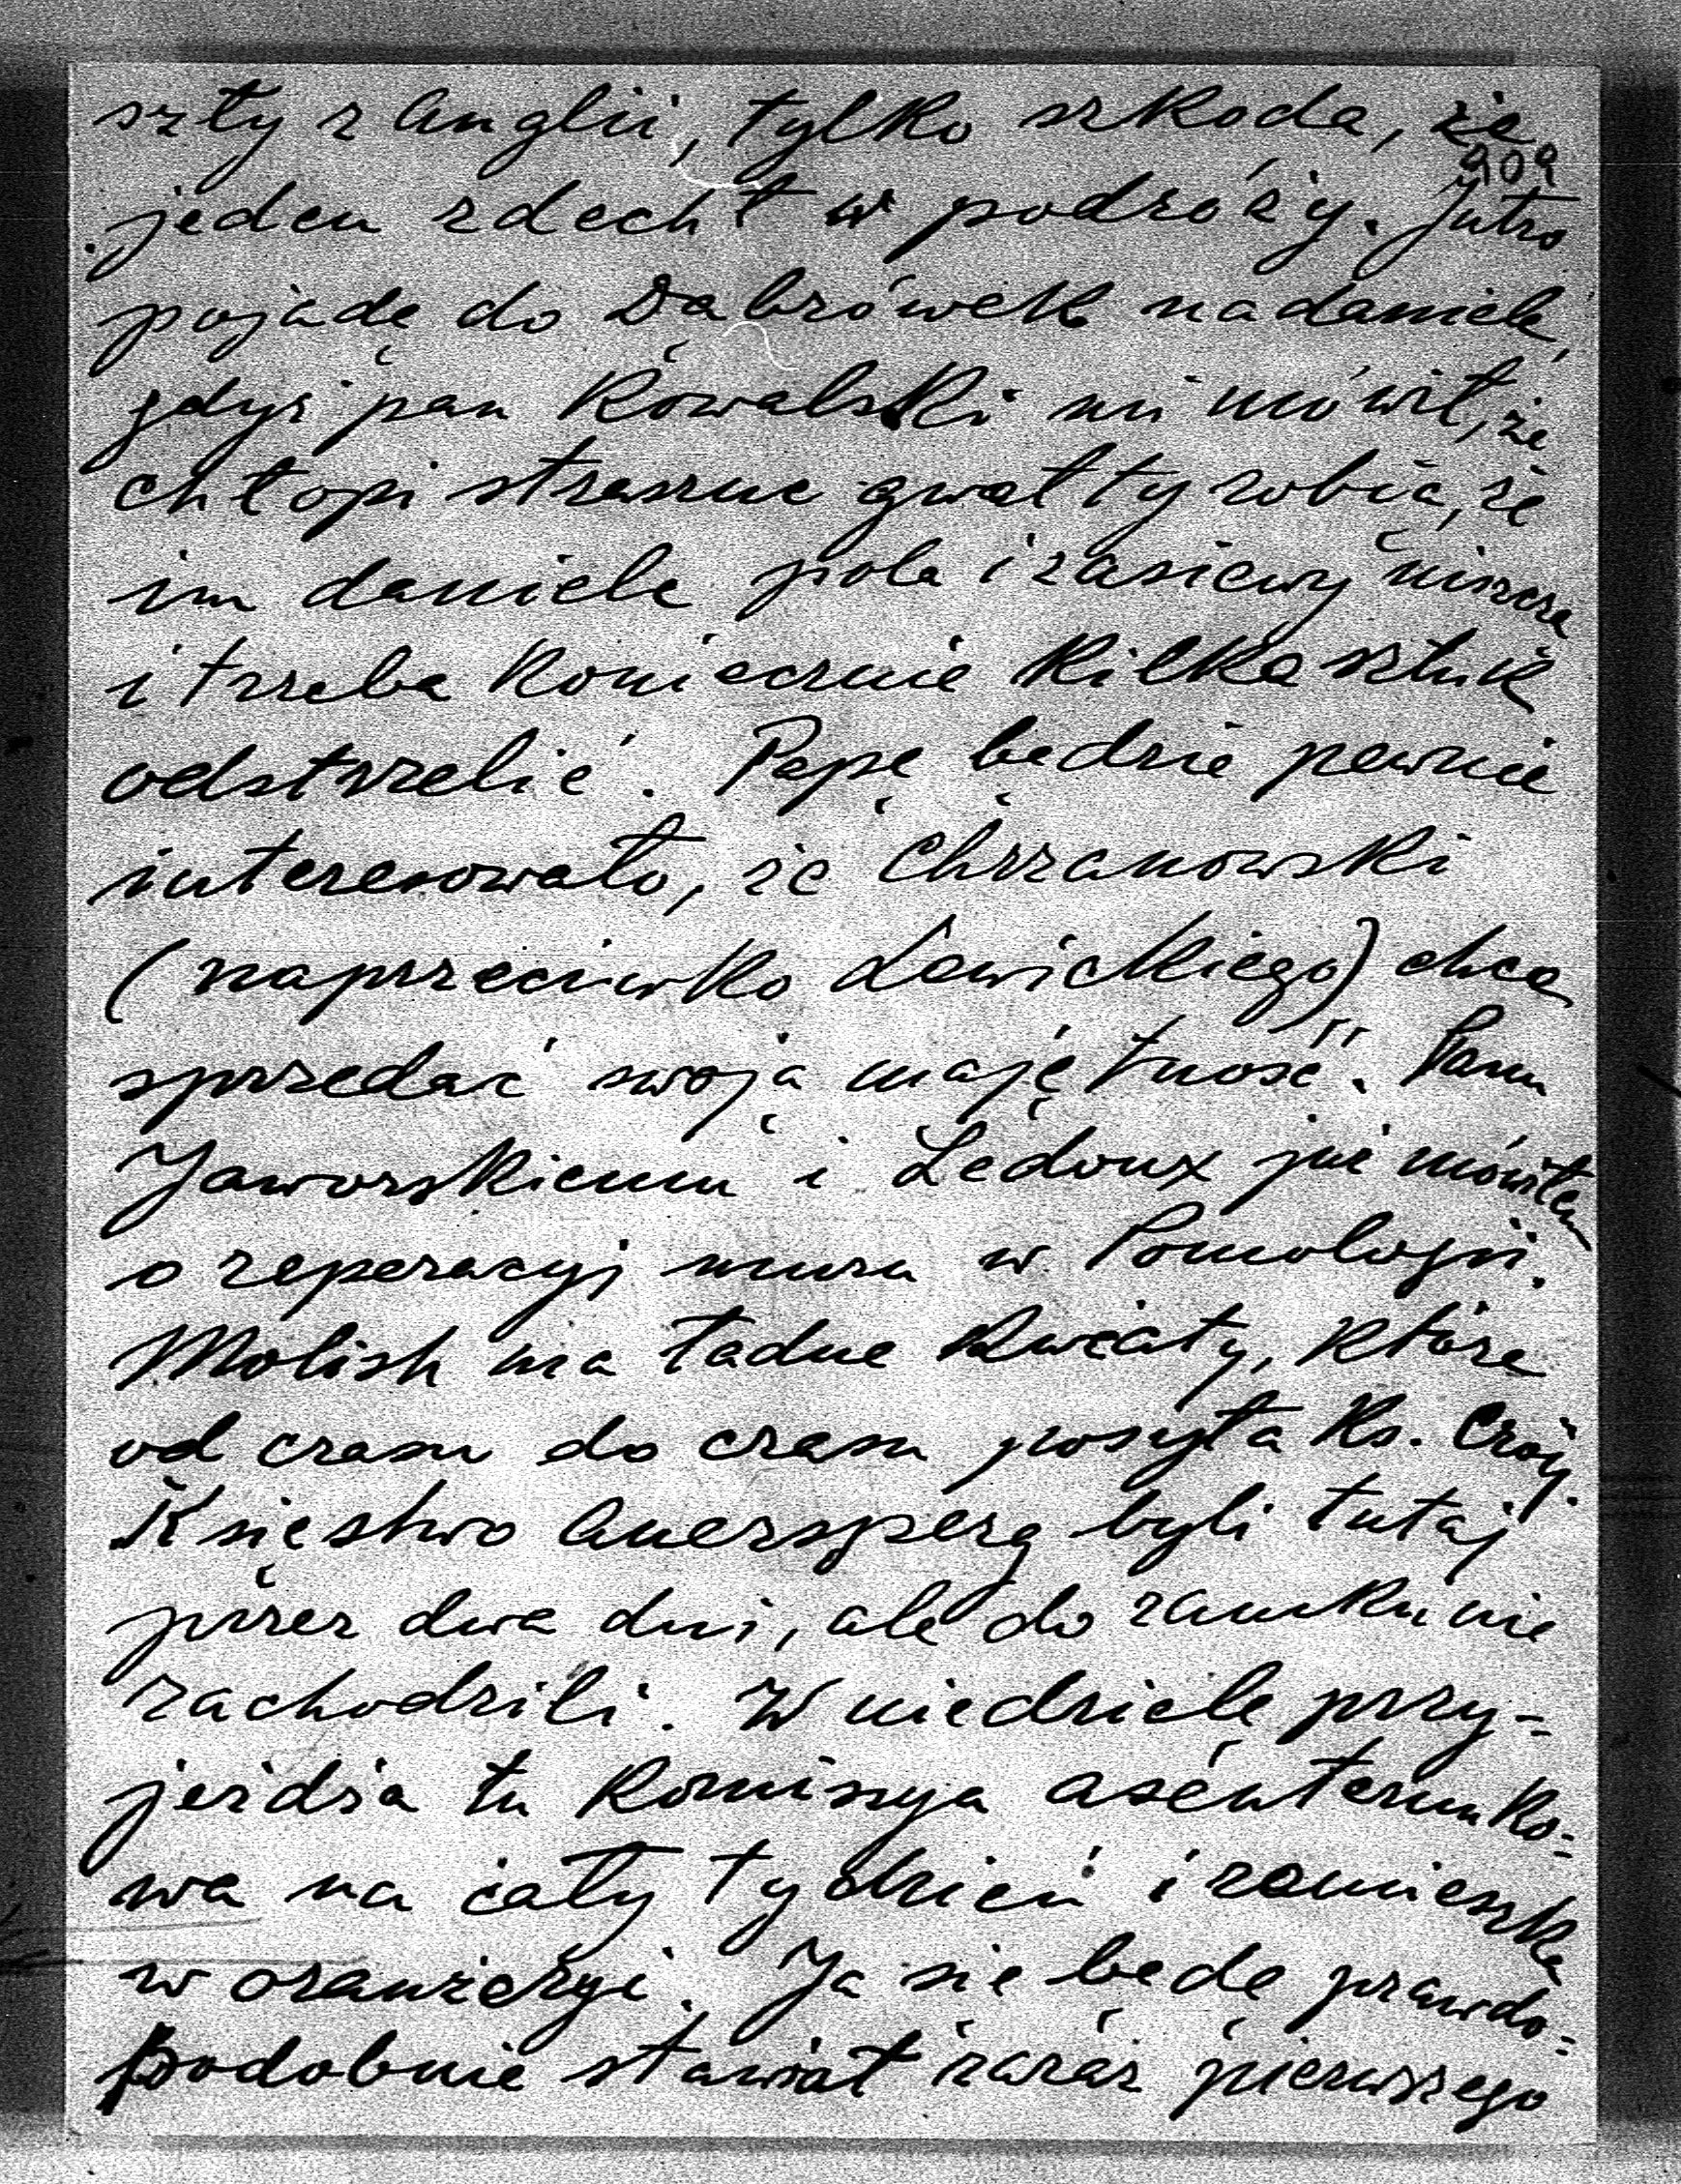 szły z Anglii, tylko szkoda, że
909
jeden zdechł w podróży. Jutro
pojadę do Dąbrówek na daniele,
gdyż pan Kowalski mi mówił, że
chłopi straszne gwałty robią, że
im daniele pola i zasiewy niszczą
i trzeba koniecznie kilka sztuk
odstrzelić. Papę będzie pewnie
interesowało, że Chrzanowski
(naprzeciwko Lewickiego) chce
sprzedać swoją majętność. Panu
Jaworskiemu i Ledoux już mówiłem
o reperacyj muru w Pomologii.
Molish ma ładne kwiaty, które
od czasu do czasu posyła Ks. Croÿ.
Księstwo Auersperg byli tutaj
przez dwa dni, ale do zamku nie
zachodzili. W niedziele przy-
jeżdża tu Komissya asenterunko-
wa na cały tydzień i zamieszka
w oranżeryi. Ja się będę prawdo-
podobnie stawiał zaraz pierwszego